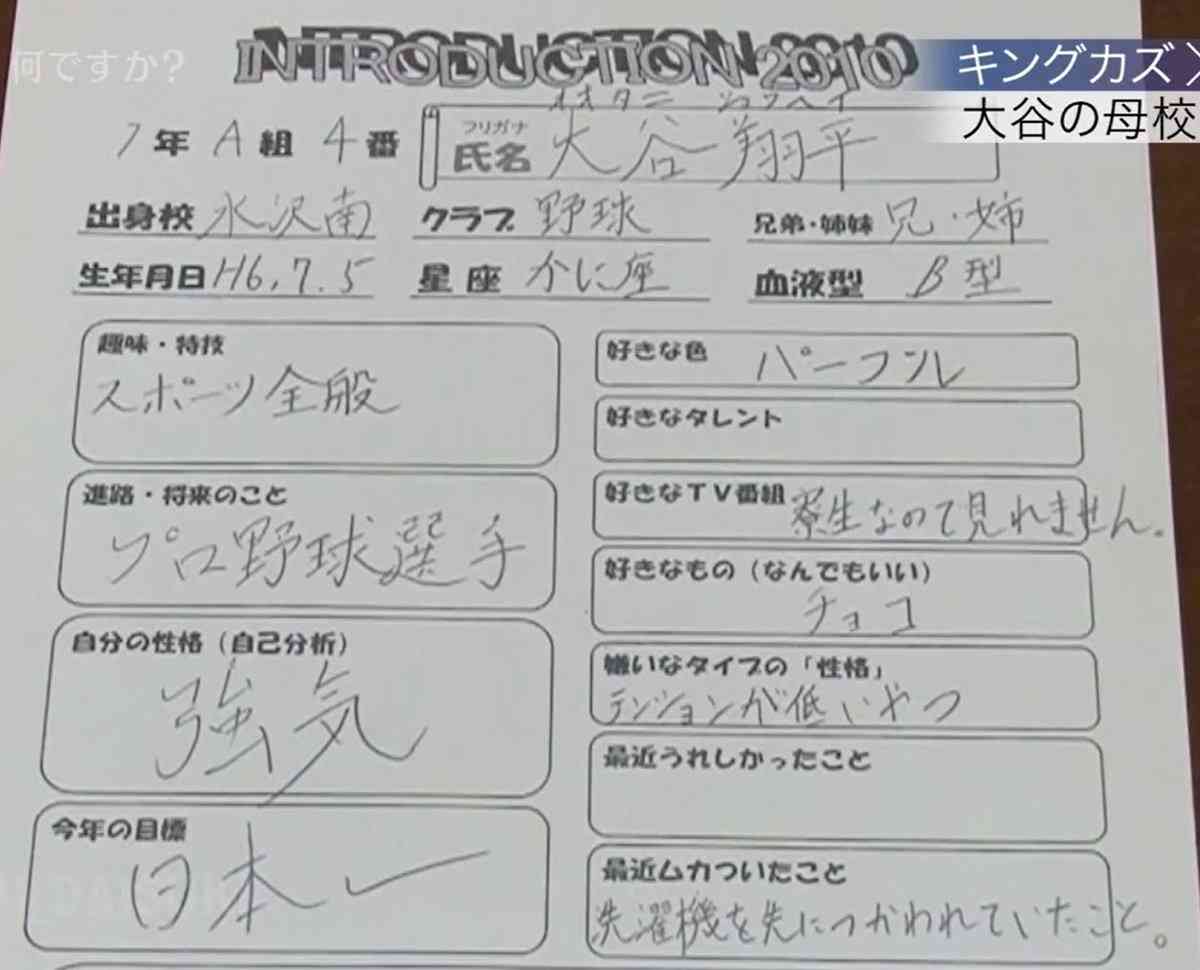 何ですか?
INTRODUCTION 2010
キングカズ
大谷の母校
オオタニ ショウヘイ
1年 A組 4番
フリガナ
氏名 大谷翔平
出身校 水沢南 クラブ 野球 兄弟・姉妹 兄・姉
生年月日 H6,7.5 星座 かに座 血液型 B型
趣味・特技
スポーツ全般
進路・将来のこと
プロ野球選手
自分の性格(自己分析)
強気
今年の目標
日本一
好きな色 パープル
好きなタレント
好きなTV番組 寮生なので見れません。
好きなもの(なんでもいい)
チョコ
嫌いなタイプの「性格」
テンションが低いやつ
最近うれしかったこと
最近ムカついたこと
洗濯機を先につかわれていたこと。